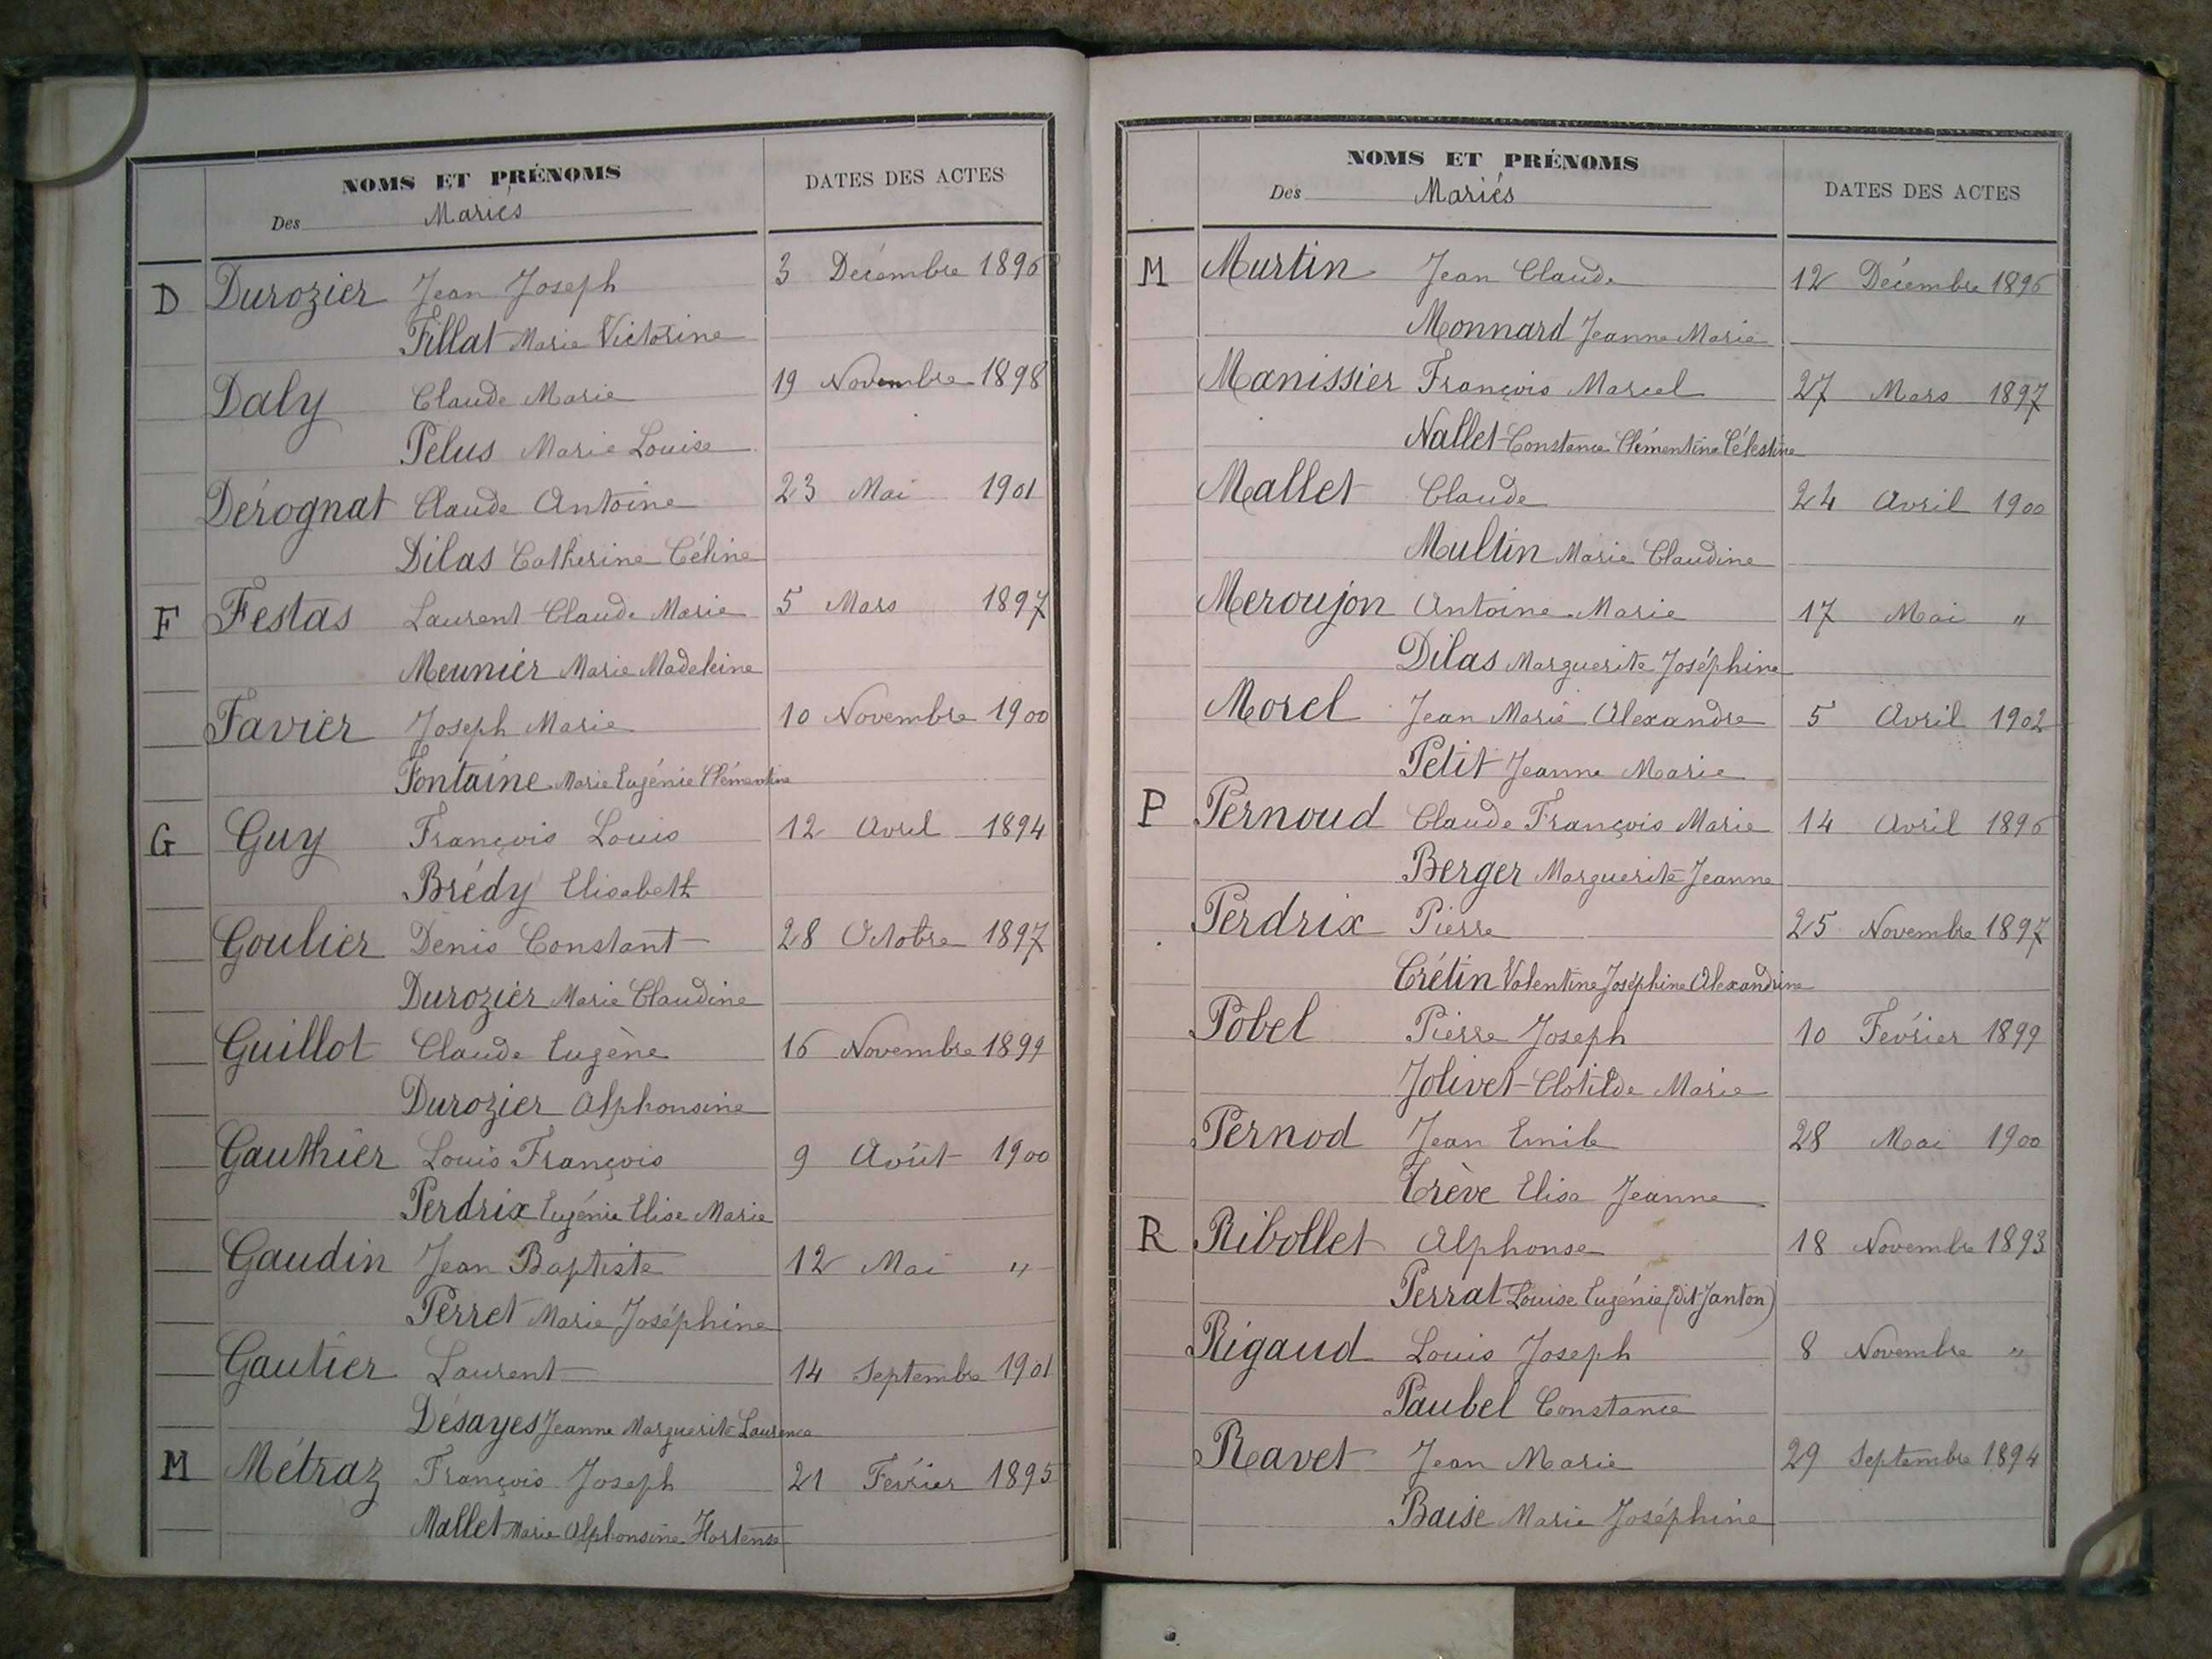 NOMS ET PRÉNOMS
Des Mariés
DATES DES ACTES
D Durozier Jean Joseph 3 Décembre 1896
Fillat Marie Victorine
Daly Claude Marie 19 Novembre 1898
Pelus Marie Louise
Dérognat Claude Antoine 23 Mai 1901
Dilas Catherine Céline
F Festas Laurent Claude Marie 5 Mars 1897
Meunier Marie Madeleine
Favier Joseph Marie 10 Novembre 1900
Fontaine Marie Eugénie Clémentine
G Guy François Louis 12 Avril 1894
Brédy Elisabeth
Goulier Denis Constant 28 Octobre 1897
Durozier Marie Claudine
Guillot Claude Eugène 16 Novembre 1899
Durozier Alphonsine
Gauthier Louis François 9 Août 1900
Perdrix Eugénie Elise Marie
Gaudin Jean Baptiste 12 Mai "
Perret Marie Joséphine
Gautier Laurent 14 Septembre 1901
Désayes Jeanne Marguerite Laurence
M Métraz François Joseph 21 Février 1895
Mallet Marie Alphonsine Hortense
NOMS ET PRÉNOMS
Des Mariés
DATES DES ACTES
M Murtin Jean Claude 12 Décembre 1896
Monnard Jeanne Marie
Manissier François Marcel 27 Mars 1897
Nallet Constance Clémentine Célestine
Mallet Claude 24 Avril 1900
Multin Marie Claudine
Meroujon Antoine Marie 17 Mai "
Dilas Marguerite Joséphine
Morel Jean Marie Alexandre 5 Avril 1902
Petit Jeanne Marie
P Pernoud Claude François Marie 14 Avril 1896
Berger Marguerite Jeanne
Perdrix Pierre 25 Novembre 1897
Crétin Valentine Joséphine Alexandrine
Pobel Pierre Joseph 10 Février 1899
Jolivet Clotilde Marie
Pernod Jean Emile 28 Mai 1900
Trève Elisa Jeanne
R Ribollet Alphonse 18 Novembre 1893
Perrat Louise Eugénie (dit Janton)
Rigaud Louis Joseph 8 Novembre "
Paubel Constance
Ravet Jean Marie 29 Septembre 1894
Baise Marie Joséphine